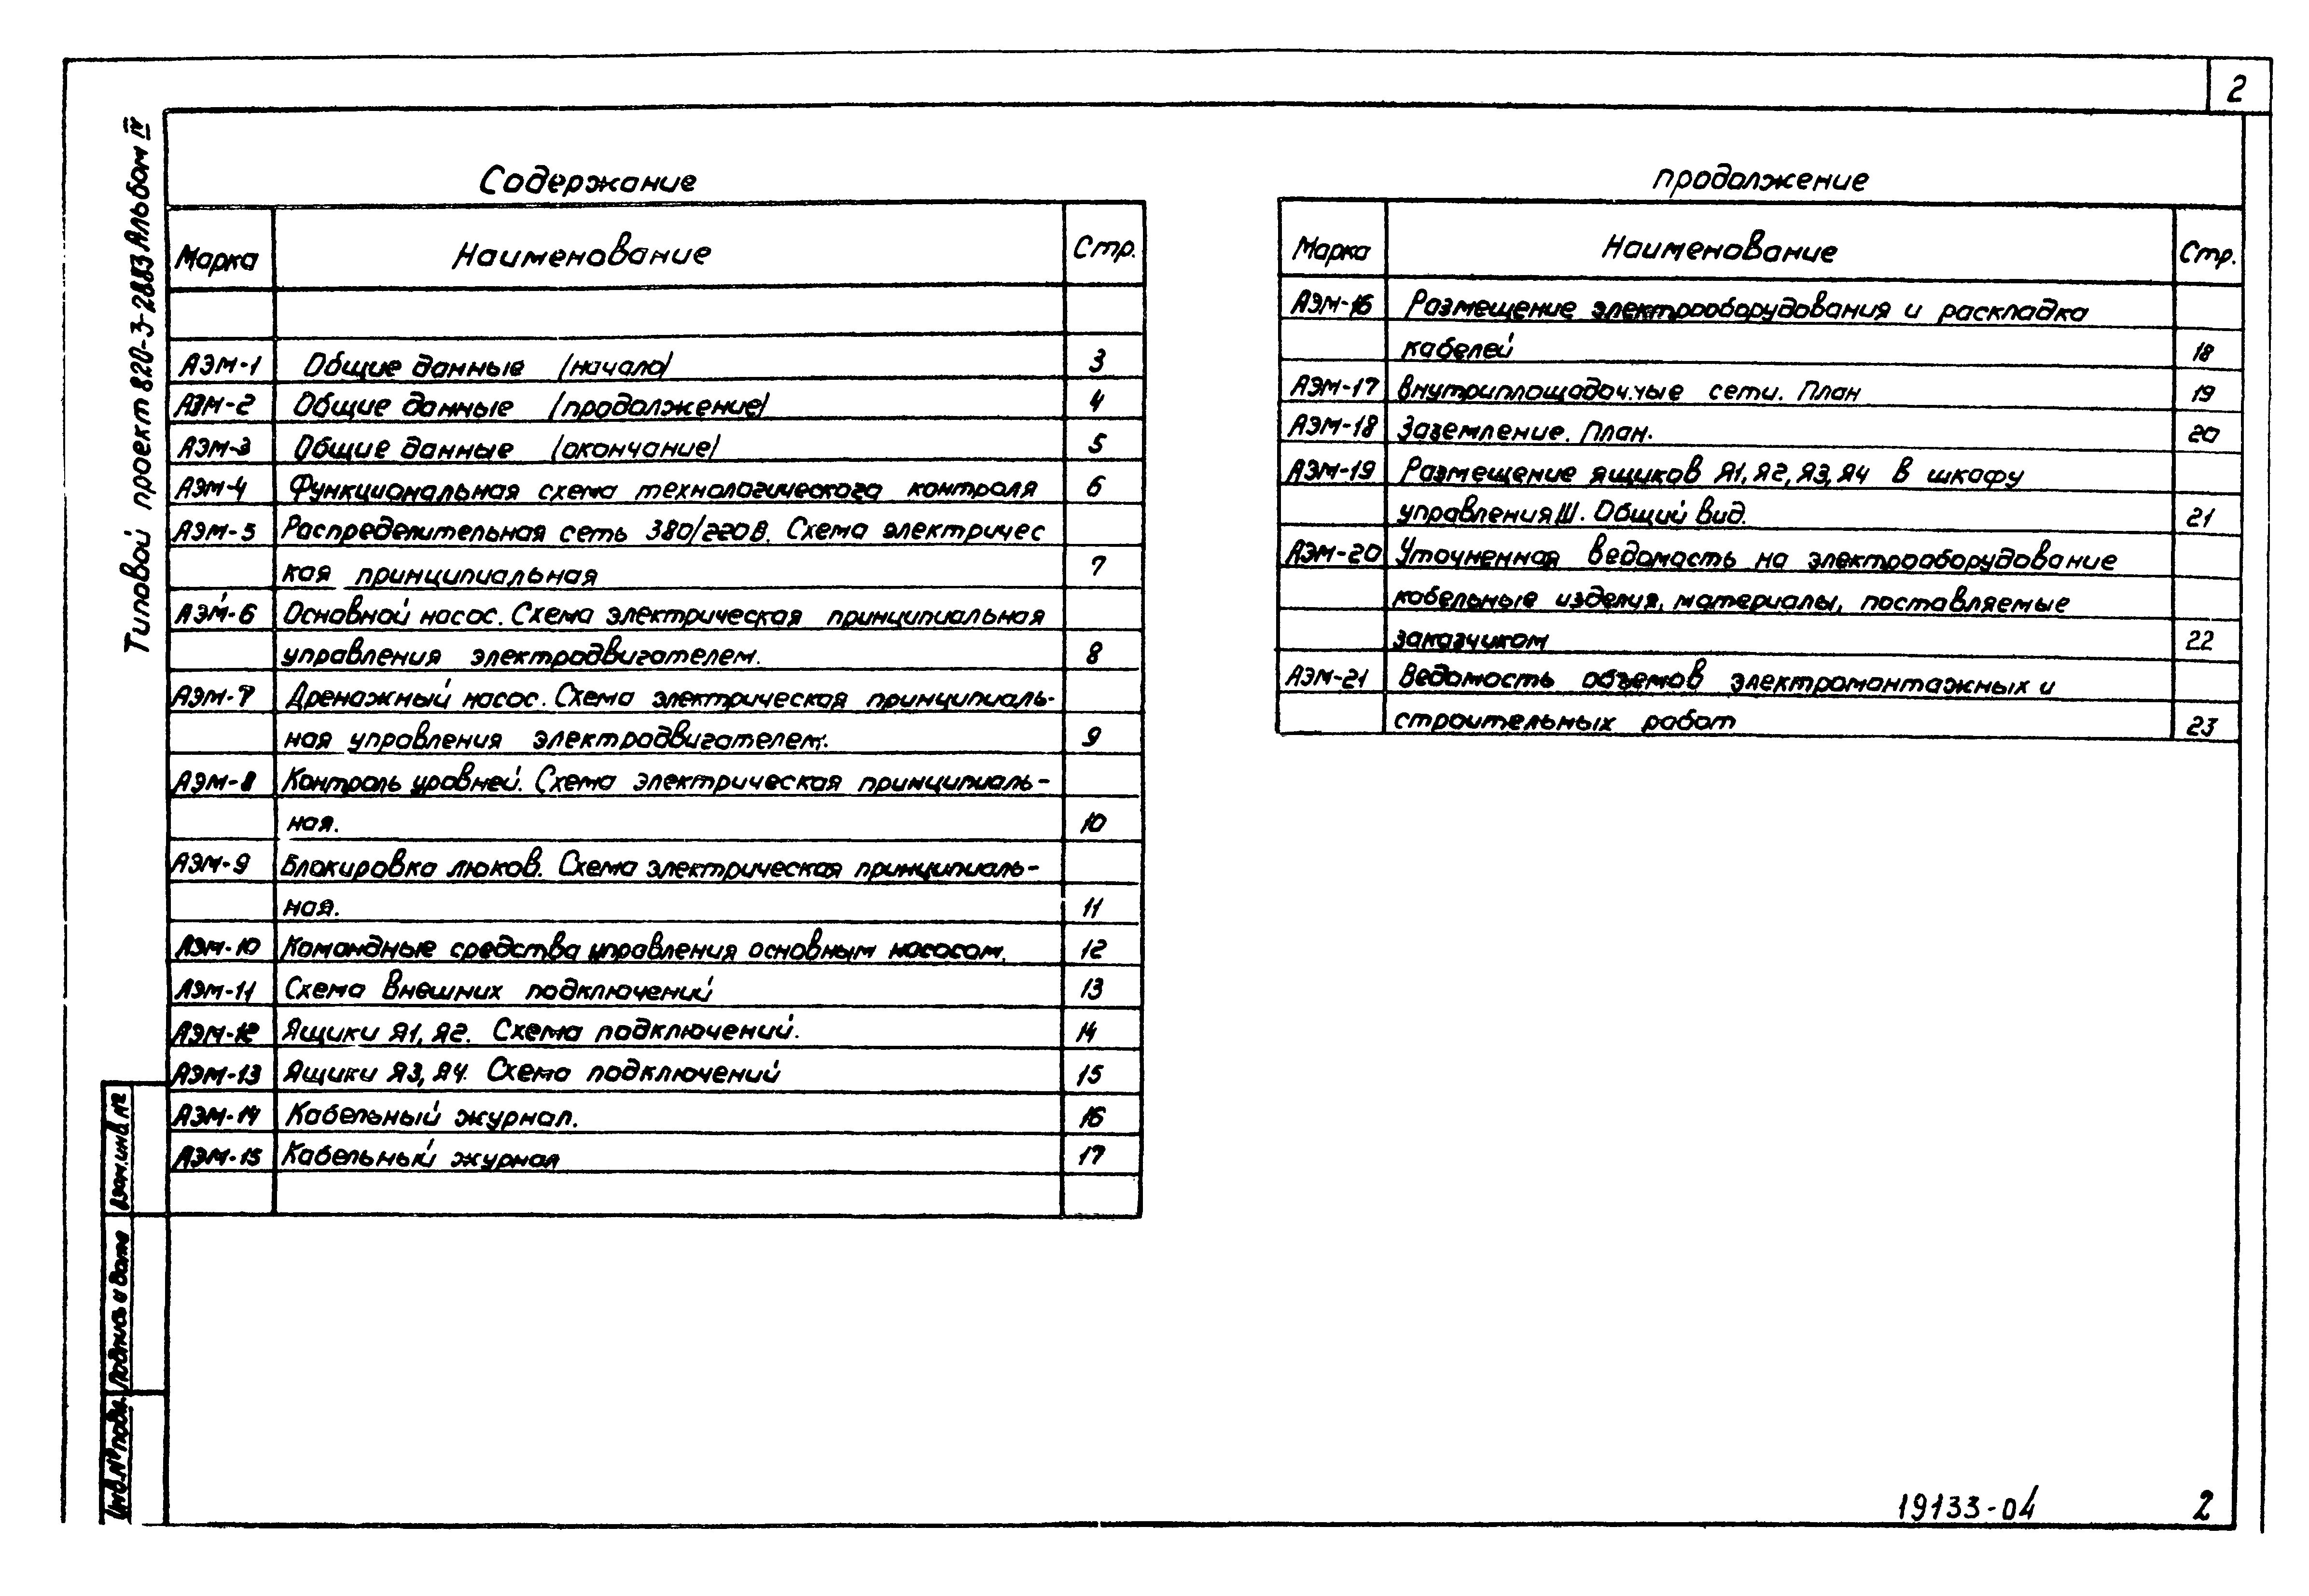 2
Типовой проект 820-3-28.83 Альбом IV
Содержание
Марка Наименование Стр.
АЭМ-1 Общие данные /начало/ 3
АЭМ-2 Общие данные /продолжение/ 4
АЭМ-3 Общие данные /окончание/ 5
АЭМ-4 Функциональная схема технологического контроля 6
АЭМ-5 Распределительная сеть 380/220В. Схема электричес
кая принципиальная 7
АЭМ-6 Основной насос. Схема электрическая принципиальная
управления электродвигателем. 8
АЭМ-7 Дренажный насос. Схема электрическая принципиаль-
ная управления электродвигателем. 9
АЭМ-8 Контроль уровней. Схема электрическая принципиаль-
ная. 10
АЭМ-9 Блокировка люков. Схема электрическая принципиаль-
ная. 11
АЭМ-10 Командные средства управления основным насосом. 12
АЭМ-11 Схема внешних подключений 13
АЭМ-12 Ящики Я1, Я2. Схема подключений. 14
АЭМ-13 Ящики Я3, Я4. Схема подключений 15
АЭМ-14 Кабельный журнал. 16
АЭМ-15 Кабельный журнал 17
продолжение
Марка Наименование Стр.
АЭМ-16 Размещение электрооборудования и раскладка
кабелей 18
АЭМ-17 Внутриплощадочные сети. План 19
АЭМ-18 Заземление. План. 20
АЭМ-19 Размещение ящиков Я1, Я2, Я3, Я4 в шкафу
управления Ш. Общий вид. 21
АЭМ-20 Уточненная ведомость на электрооборудование
кабельные изделия, материалы, поставляемые
заказчиком 22
АЭМ-21 Ведомость объемов электромонтажных и
строительных работ 23
Взам.инв.№
Подпись и дата
Инв.№ подл.
19133-04 2